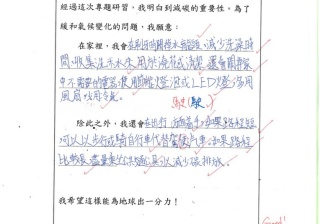 經過這次專題研習，我明白到減碳的重要性。為了
緩和氣候變化的問題，我願意：
在家裡，我會在刷牙時關掉水龍頭，減少洗澡時
間，收集洗米水來用於澆花或清潔，還會關掉家
中不需要的電器，使用節能燈泡或LED燈，多用
風扇，少用冷氣。
駛(駛)
除此之外，我還會在出行方面着手，如果路程短
可以以步行或騎自行車代替駕駛汽車，如果路程
比較長，盡量乘坐公共交通工具以減少碳排放。
我希望這樣能為地球出一分力！
Good!